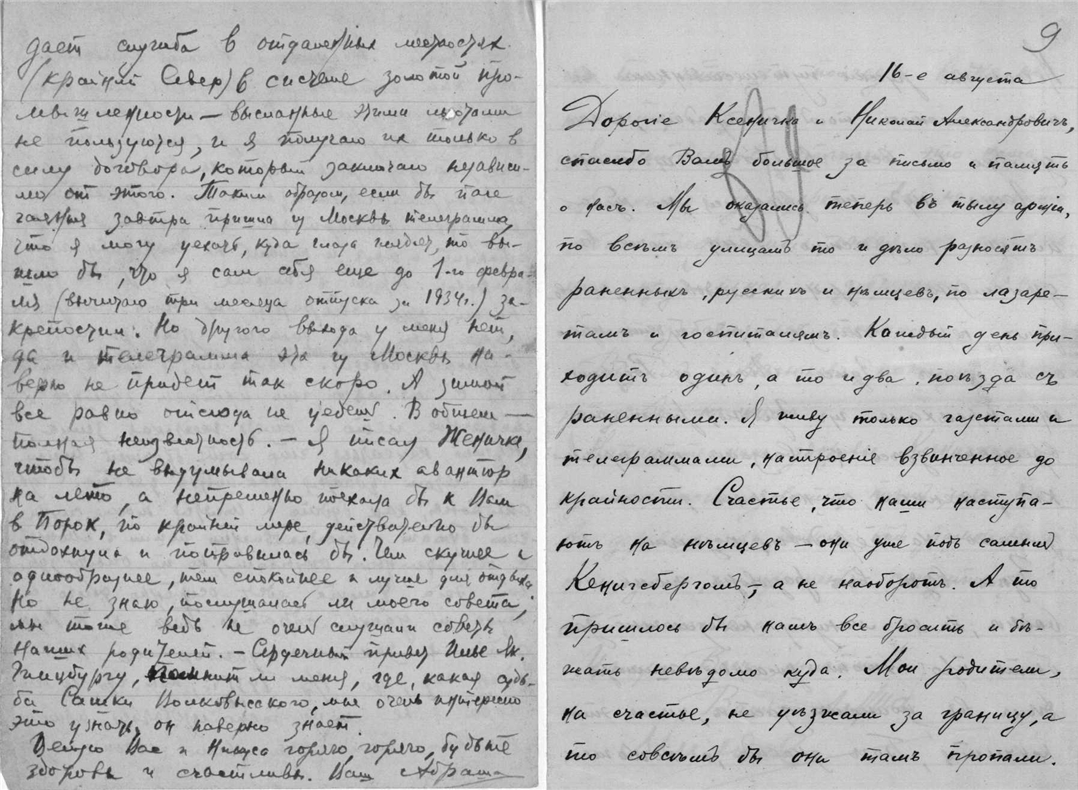 дает служба в отдаленных местностях
(крайний Север) в системе золотой про-
мышленности — высланные этими льготами
не пользуются, и я получаю их только в
силу договора, который заключаю независи-
мо от этого. Таким образом, если бы паче
чаяния завтра пришла из Москвы телеграмма,
что я могу уехать, куда глаза глядят, то вы-
шло бы, что я сам себя еще до 1-го февра-
ля (вычитаю три месяца отпуска за 1934г.) за-
крепостил. Но другого выхода у меня нет,
да и телеграмма эта из Москвы на-
верно не придет так скоро. А зимой
все равно отсюда не уедешь. В общем —
полная неизвестность. — Я писал Женичке,
чтобы не выдумывала никаких авантюр
на лето, а непременно поехала бы к Вам
в Порок, по крайней мере, действительно бы
отдохнула и поправилась бы. Чем скучнее и
однообразнее, тем спокойнее и лучше для отдыха.
Но не знаю, послушалась ли моего совета,
мы тоже ведь не очень слушали советы
наших родителей. — Сердечный привет Илье Як.
Гинцбургу, помнит ли меня, где, какая судь-
ба Сашки Волковысского, мне очень интересно
это узнать, он наверно знает.
Целую Вас и горячо, горячо, будьте
здоровы и счастливы. Ваш Абраша
9
16-е августа
Дорогіе Ксеничка и Николай Александровичъ,
спасибо Вамъ большое за письмо и память
о насъ. Мы оказались теперь въ тылу арміи,
по всѣмъ улицамъ то и дѣло разносятъ
раненныхъ, русскихъ и нѣмцевъ, по лазаре-
тамъ и госпиталямъ. Каждый день при-
ходитъ одинъ, а то и два, поѣзда съ
раненными. Я живу только газетами и
телеграммами, настроеніе взвинченное до
крайности. Счастье, что наши наступа-
ютъ на нѣмцевъ — они уже подъ самымъ
Кенигсбергомъ, — а не наоборотъ. А то
пришлось бы намъ все бросить и бѣ-
жать невѣдомо куда. Мои родители,
на счастье, не уѣзжали за границу, а
то совсѣмъ бы они тамъ пропали.